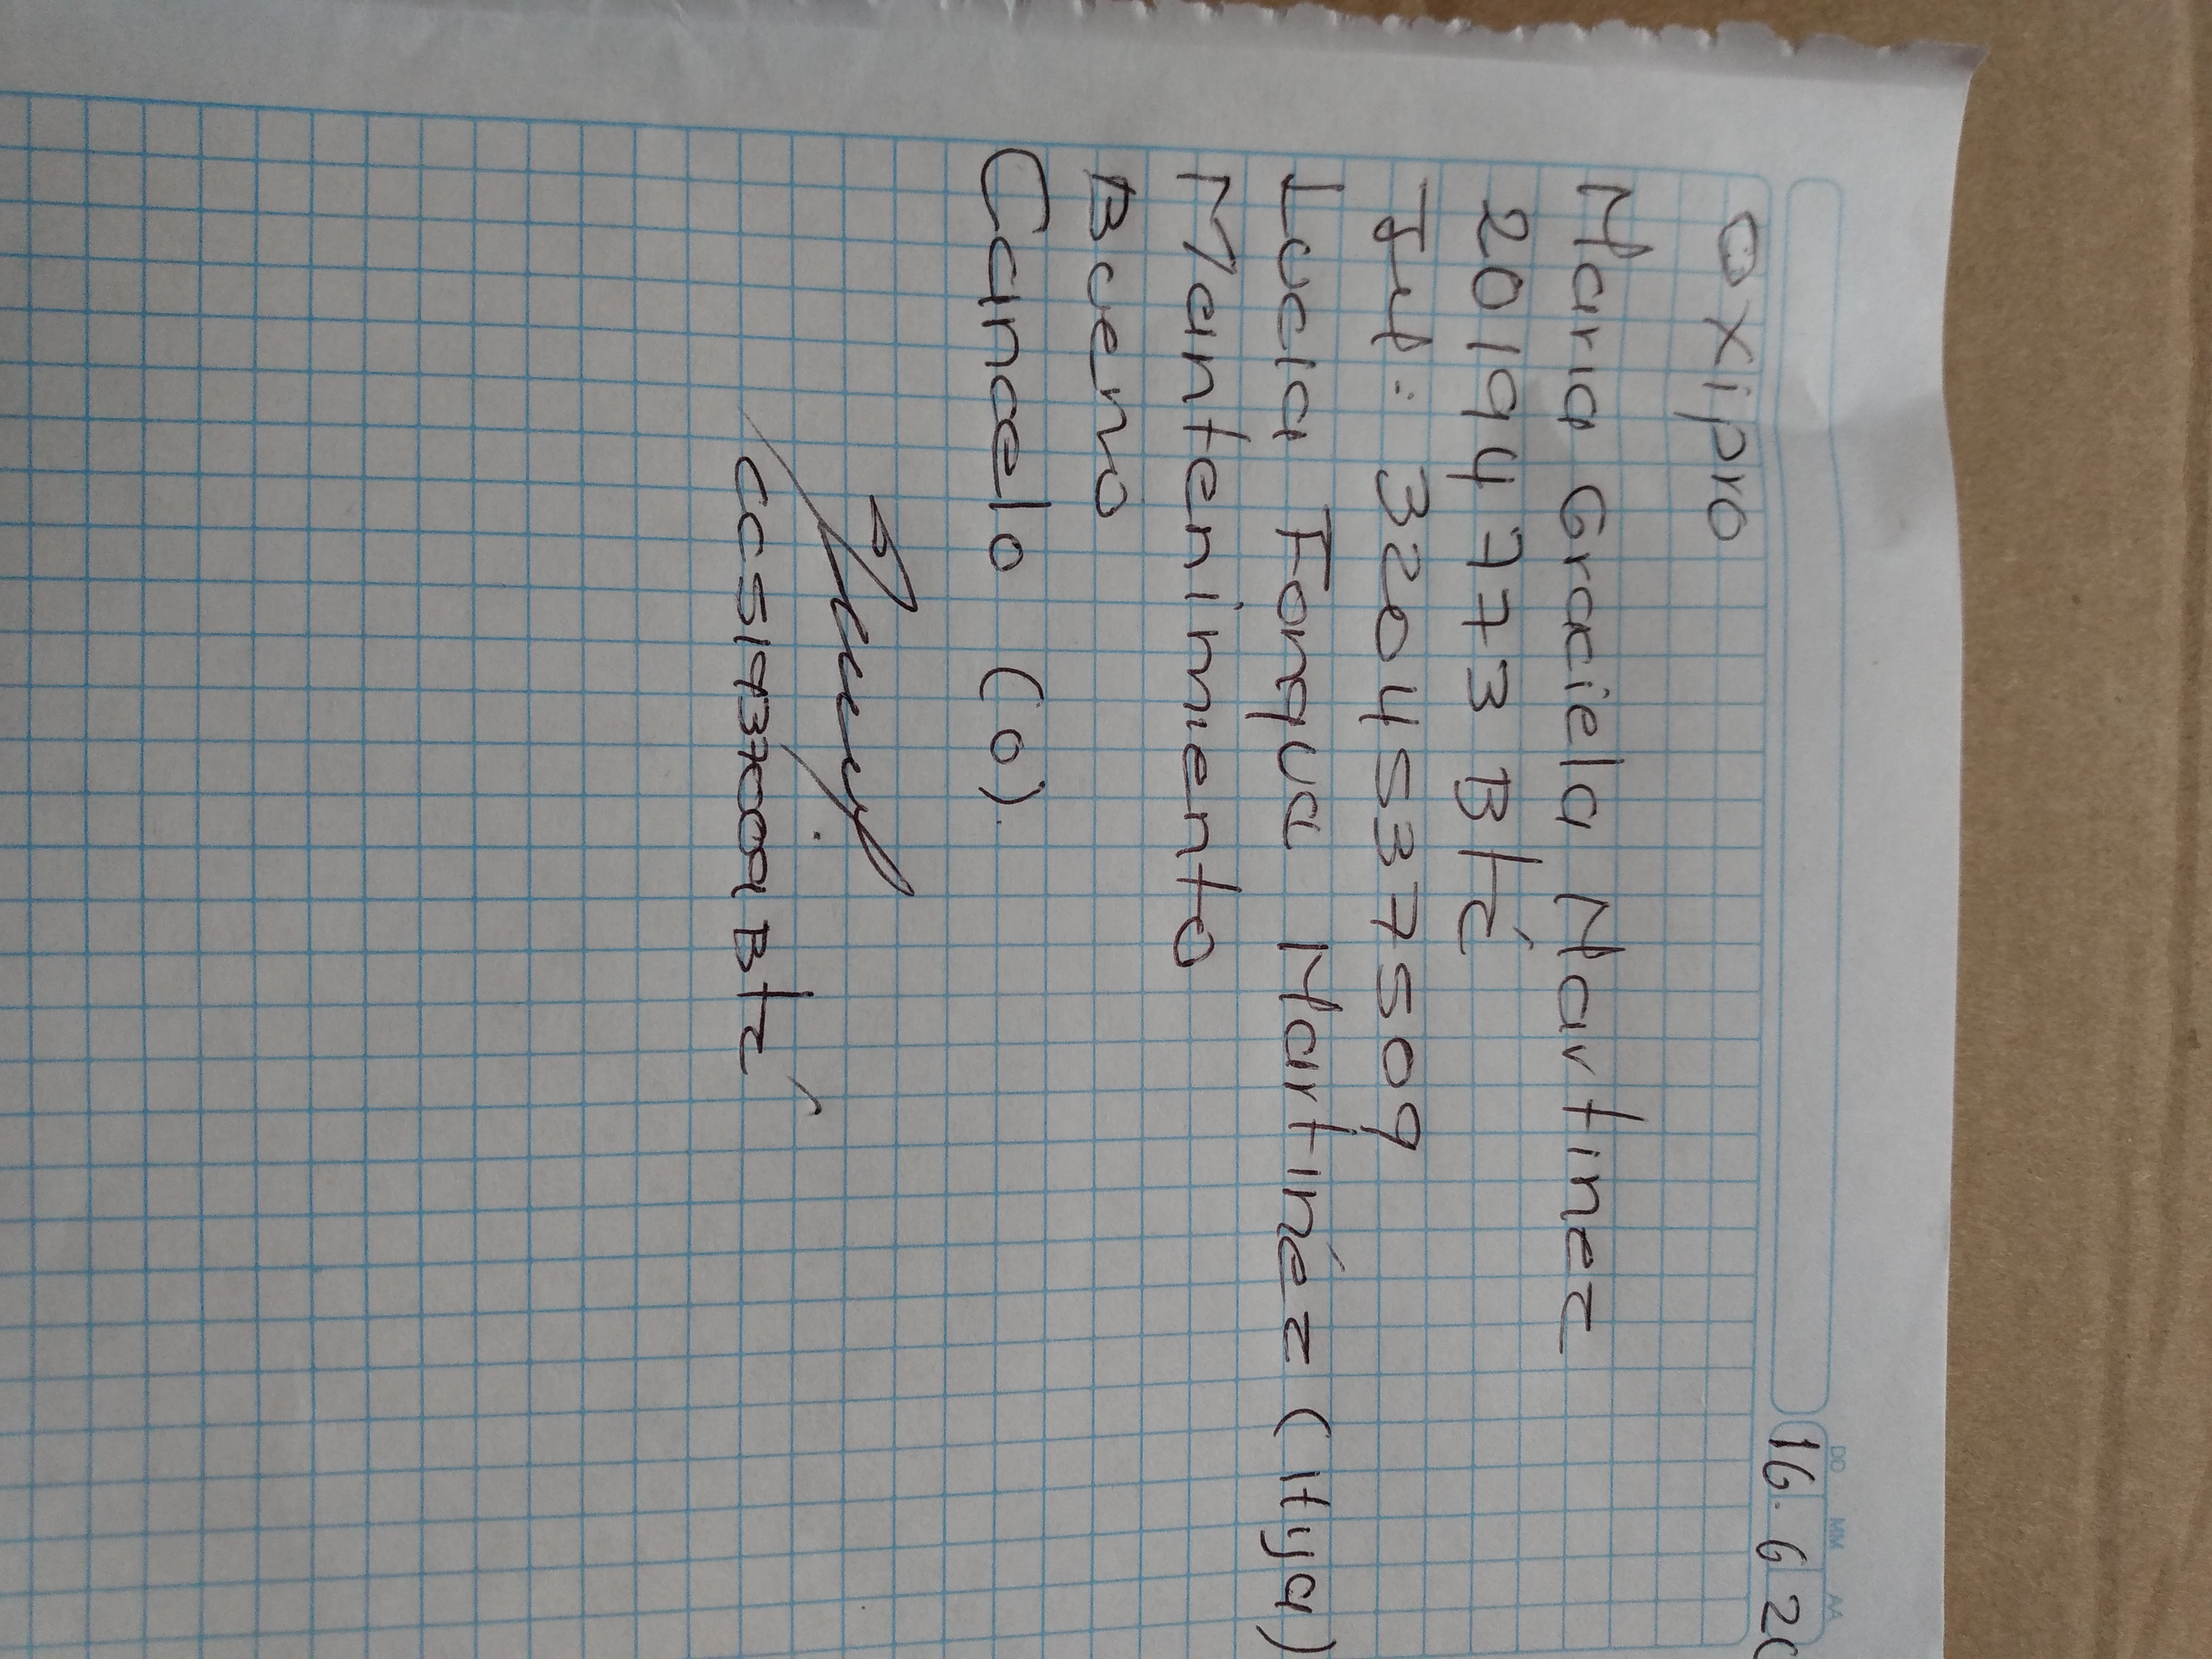 DD MM AA
16. 6 20
Oxipro
Maria Graciela Martinez
20194773 Btá
Tel: 3204537509
Lucia Tonqua Martinéz (Hija)
Mantenimiento
Bueno
Cancelo (0).